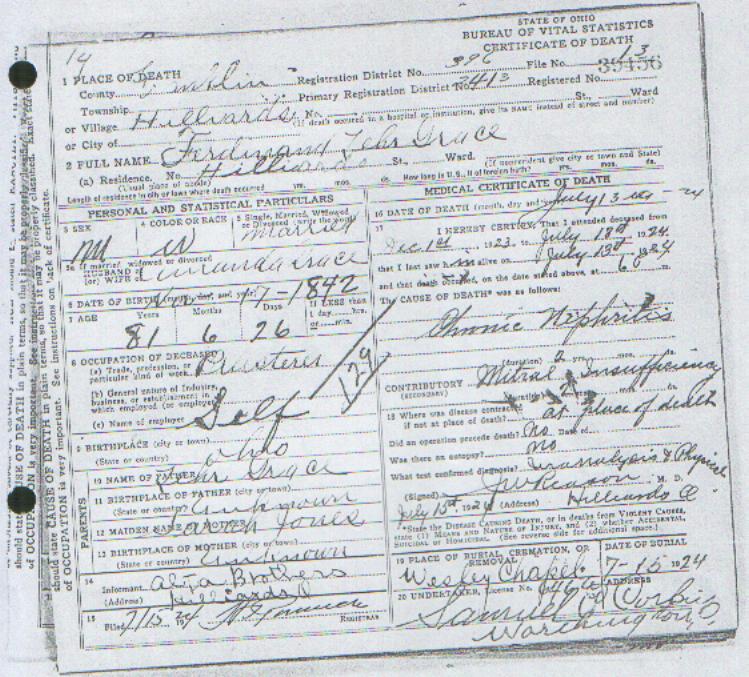 STATE OF OHIO
BUREAU OF VITAL STATISTICS
CERTIFICATE OF DEATH
14
1 PLACE OF DEATH
County Registration District No. 396 File No. 13
39456
Township Primary Registration District No. 2413 Registered No.
or Village Hilliards No. St., Ward
(If death occured in a hospital or institution, give its NAME instead of street and number)
or City of
2 FULL NAME Ferdinand Grace
(a) Residence. No. Hilliards St., Ward.
(Usual place of abode) (If nonresident give city or town and State)
Length of residence in city or town where death occurred yrs. mos. ds. How long in U. S., if of foreign birth? yrs. mos. ds.
PERSONAL AND STATISTICAL PARTICULARS
3 SEX 4 COLOR OR RACE 5 Single, Married, Widowed or Divorced (write the word)
M W Married
5a If married, widowed or divorced
HUSBAND of
(or) WIFE of Amanda Grace
6 DATE OF BIRTH (month, day, and year) 17-1842
7 AGE Years Months Days If LESS than
1 day, hrs.
or min.
81 6 26
8 OCCUPATION OF DECEASED
(a) Trade, profession, or
particular kind of work Plasterer
(b) General nature of industry,
business, or establishment in
which employed (or employer)
(c) Name of employer Self
129
9 BIRTHPLACE (city or town)
(State or country) Ohio
PARENTS
10 NAME OF FATHER Grace
11 BIRTHPLACE OF FATHER (city or town)
(State or country) Unknown
12 MAIDEN NAME OF MOTHER Jones
13 BIRTHPLACE OF MOTHER (city or town)
(State or country) Unknown
14
Informant Brothers
(Address) Hilliards O
15
Filed 7/15 24 REGISTRAR
MEDICAL CERTIFICATE OF DEATH
16 DATE OF DEATH (month, day and year) July 13 24
17 I HEREBY CERTIFY, That I attended deceased from
Dec 1st 1923, to July 13th 1924
that I last saw h im alive on July 13th 1924
and that death occurred, on the date stated above, at 6 m.
The CAUSE OF DEATH* was as follows:
Chronic Nephritis
(duration) 2 yrs. mos. ds.
CONTRIBUTORY Mitral Insufficiency
(SECONDARY)
(duration) 2 yrs. mos. ds.
18 Where was disease contracted
if not at place of death? at place of death
Did an operation precede death? No Date of
Was there an autopsy? no
What test confirmed diagnosis? Uranalysis & Physical
(Signed) M. D.
July 15th 1924 (Address) Hilliards O
*State the DISEASE CAUSING DEATH, or in deaths from VIOLENT CAUSES,
state (1) MEANS AND NATURE OF INJURY, and (2) whether ACCIDENTAL,
SUICIDAL or HOMICIDAL. (See reverse side for additional space.)
19 PLACE OF BURIAL, CREMATION, OR REMOVAL DATE OF BURIAL
Wesley Chapel 7-15 1924
20 UNDERTAKER, License No. ADDRESS
Samuel Corbin
Worthington, O
should state CAUSE OF DEATH in plain terms, so that it may be properly classified. Exact
of OCCUPATION is very important. See instructions on back of certificate.